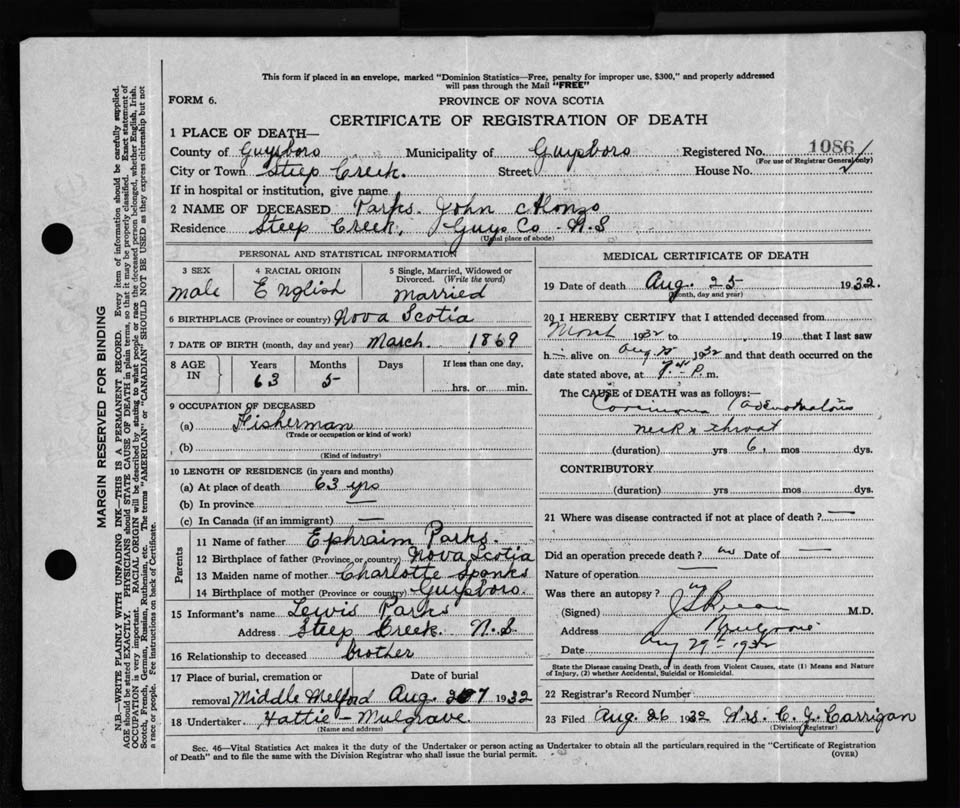 This form if placed in an envelope, marked "Dominion Statistics—Free, penalty for improper use, $300," and properly addressed
will pass through the Mail "FREE"
FORM 6.
PROVINCE OF NOVA SCOTIA
CERTIFICATE OF REGISTRATION OF DEATH
1 PLACE OF DEATH—
County of Guysboro Municipality of Guysboro Registered No. 1086
(For use of Registrar General only)
City or Town Steep Creek. Street House No.
If in hospital or institution, give name
2 NAME OF DECEASED Parks. John Alonzo
Residence Steep Creek, Guys Co. N.S
(Usual place of abode)
PERSONAL AND STATISTICAL INFORMATION
3 SEX male
4 RACIAL ORIGIN English
5 Single, Married, Widowed or
Divorced. (Write the word)
Married
6 BIRTHPLACE (Province or country) Nova Scotia
7 DATE OF BIRTH (month, day and year) March. 1869
8 AGE IN Years 63 Months 5 Days If less than one day,
hrs. or min.
9 OCCUPATION OF DECEASED
(a) Fisherman
(Trade or occupation or kind of work)
(b)
(Kind of industry)
10 LENGTH OF RESIDENCE (in years and months)
(a) At place of death 63 yrs
(b) In province —
(c) In Canada (if an immigrant) —
Parents
11 Name of father Ephraim Parks.
12 Birthplace of father (Province or country) Nova Scotia
13 Maiden name of mother Charlotte
14 Birthplace of mother (Province or country) Guysboro.
15 Informant's name Lewis Parks
Address Steep Creek. N.S
16 Relationship to deceased brother
17 Place of burial, cremation or Date of burial
removal Middle Melford Aug. 27 1932
18 Undertaker Hattie – Mulgrave.
(Name and address)
MEDICAL CERTIFICATE OF DEATH
19 Date of death Aug. 25 1932.
(month, day and year)
20 I HEREBY CERTIFY that I attended deceased from
March 1932 to , 19 that I last saw
h alive on Aug 25 1932 and that death occurred on the
date stated above, at P. m.
The CAUSE of DEATH was as follows:—
Carcinoma
neck & throat
(duration) yrs 6, mos dys.
CONTRIBUTORY
(duration) yrs mos dys.
21 Where was disease contracted if not at place of death? —
Did an operation precede death? no Date of —
Nature of operation —
Was there an autopsy? no
(Signed) M.D.
Address Mulgrave
Date Aug 29th 1932
State the Disease causing Death, or in death from Violent Causes, state (1) Means and Nature
of Injury, (2) whether Accidental, Suicidal or Homicidal.
22 Registrar's Record Number
23 Filed Aug. 26 1932 Mrs. C. J. Carrigan
(Division Registrar)
Sec. 46—Vital Statistics Act makes it the duty of the Undertaker or person acting as Undertaker to obtain all the particulars required in the "Certificate of Registration
of Death" and to file the same with the Division Registrar who shall issue the burial permit. (OVER)
MARGIN RESERVED FOR BINDING
N.B.—WRITE PLAINLY WITH UNFADING INK—THIS IS A PERMANENT RECORD. Every item of information should be carefully supplied.
AGE should be stated EXACTLY. PHYSICIANS should STATE CAUSE OF DEATH in plain terms, so that it may be properly classified. Exact statement of
OCCUPATION is very important. RACIAL ORIGIN will be described by stating to what people or race the deceased person belonged, whether English, Irish,
Scotch, French, German, Russian, Ruthenian, etc. The terms "AMERICAN" or "CANADIAN" SHOULD NOT BE USED as they express citizenship but not
a race or people. See instructions on back of Certificate.